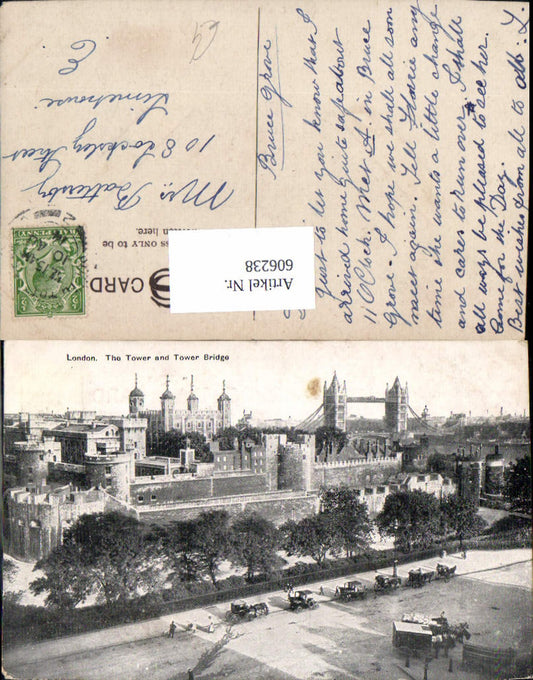 Bruce Grove
Just to let you know that I
arrived home quite safe about
11 OClock. Met A in Bruce
Grove. I hope we shall all soon
meet again. Tell Florie any
time she wants a little change
and cares to run over I shall
all ways be pleased to see her.
Come for the Day.
Best wishes from all to all. L
Mrs. Battersby
108 Locksley Street
Limehouse
E
SS ONLY TO BE
ritten here.
CARD
Artikel Nr.
606238
London. The Tower and Tower Bridge